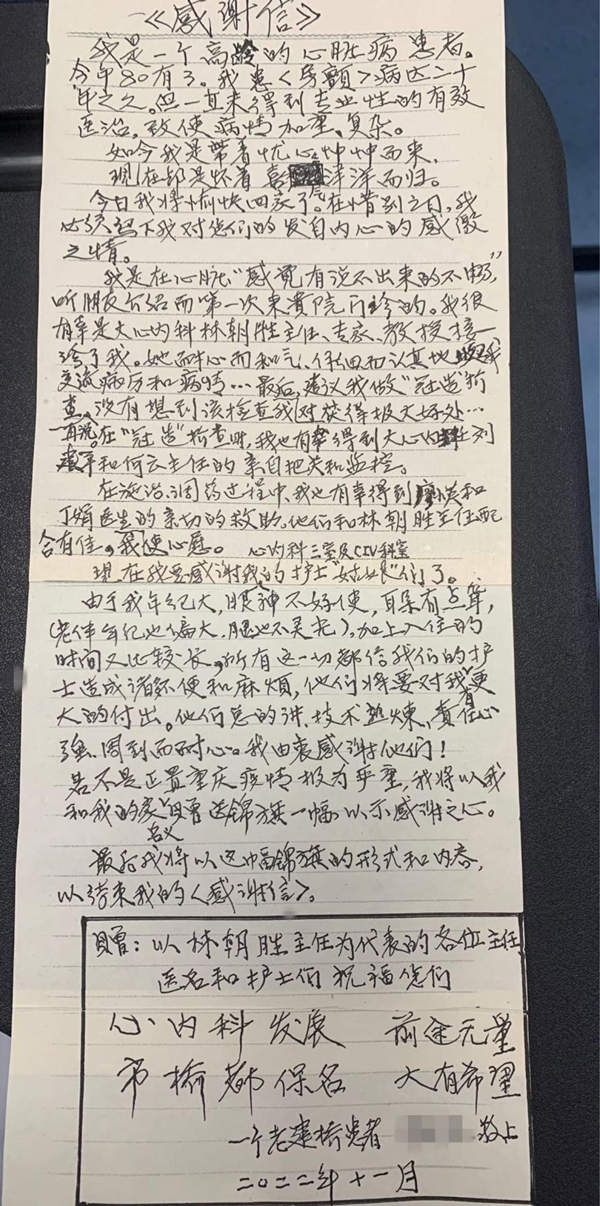 《感谢信》
我是一个高龄的心脏病患者。
今年80有3。我患<房颤>病达二十
年之久。但一直未得到专业性的有效
医治，致使病情加重、复杂。
如今我是带着忧心忡忡而来，
现在却是怀着喜津津而归。
今日我将愉快回家了。在惜别之日，我
必须写下我对您们的发自内心的感激
之情。
我是在心脏"感觉有说不出来的不畅"
听朋友介绍而第一次来贵院门诊的。我很
有幸是大心内科林朝胜主任、专家、教授接
诊了我。她耐心而和气、仔细而认真地跟我
交流病历和病情…最后，建议我做"冠造"检
查。没有想到该检查我对获得极大好处…
再说。在"冠造"检查时，我也有幸得到大心内主任刘
建平和何云主任的亲自把关和监控。
在施治、调药过程中，我也有幸得到廖 和
丁 医生的亲切的救助。他们和林朝胜主任配
合有佳，我使心愿。 心内科三室及CIV科室
现在我要感谢我的护士"姑娘"们了。
由于我年纪大，眼神不好使，耳朵有点聋，
(老伴年纪也偏大，腿也不灵光)，加上入住的
时间又比较长，所有这一切都给我们的护
士造成诸多不便和麻烦，他们将要对我有更
大的付出。他们总的讲，技术熟炼，责任心
强、周到而耐心。我由衷感谢他们！
若不是正置重庆疫情极为严重，我将以我
和我的家人名义赠送锦旗一幅，以示感谢之心。
最后我将以这幅锦旗的形式和内容，
以结束我的<感谢信>。
赠：以林朝胜主任为代表的各位主任
医名和护士们 祝福您们
心内科发展 前途无量
市桥都保名 大有希望
一个老建桥患者 敬上
二〇二二年十一月